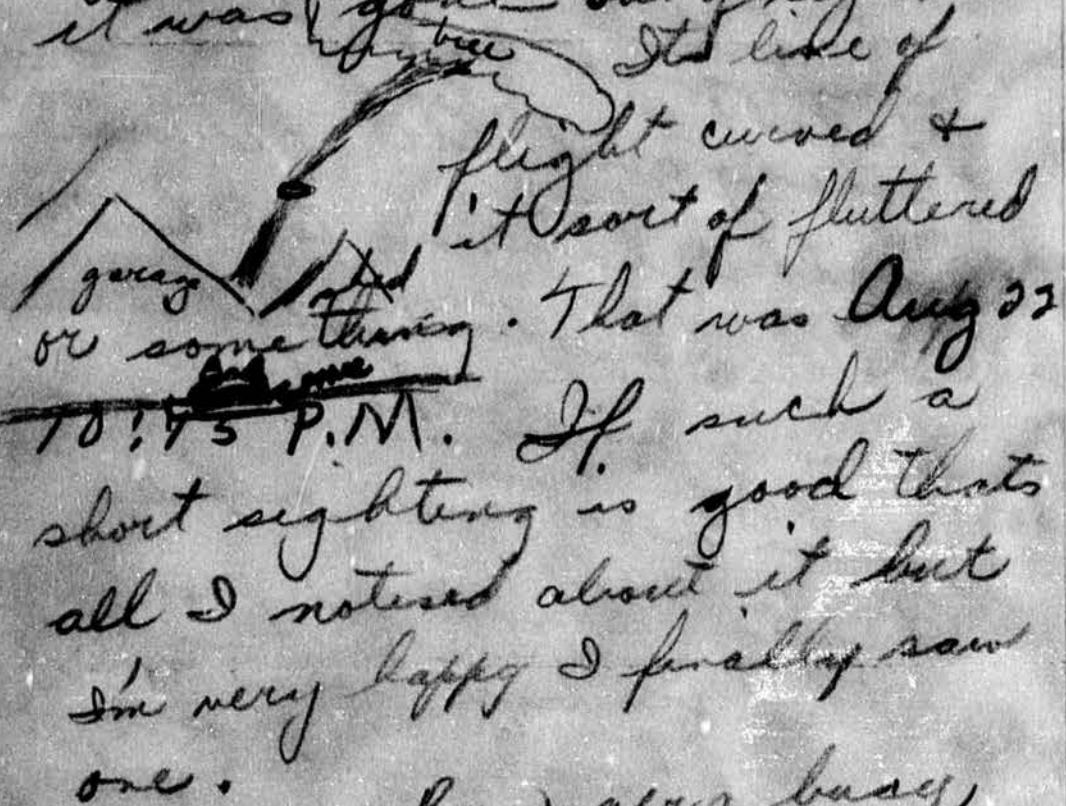 it was gone
tree
Its line of
flight curved &
it sort of fluttered
garage shed
or something. That was Aug 22
me
10:45 P.M. If such a
short sighting is good thats
all I notised about it but
I'm very happy I finally saw
one.
busy,